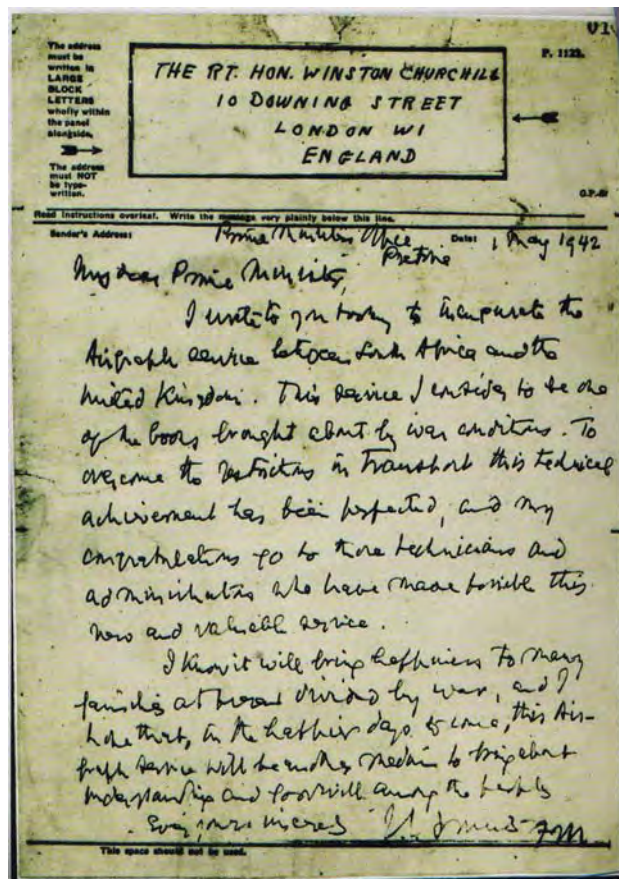 The address
must be
written in
LARGE
BLOCK
LETTERS
wholly within
the panel
alongside.
The address
must NOT
be type-
written.
THE RT. HON. WINSTON CHURCHILL
10 DOWNING STREET
LONDON W1
ENGLAND
P. 1122.
Read instructions overleaf. Write the message very plainly below this line.
Sender's Address: Prime Minister's Office Date: 1 May 1942
Pretoria
My dear Prime Minister,
I write to you today to inaugurate the
Airgraph service between South Africa and the
United Kingdom. This service I consider to be one
of the boons brought about by war conditions. To
overcome the restrictions in transport this technical
achievement has been perfected, and my
congratulations go to those technicians and
administrators who have made possible this
new and valuable service.
I know it will bring happiness to many
families at present divided by war, and I
hope that, in the happier days to come, this Air-
graph service will be another medium to bring about
understanding and goodwill among the peoples
Ever yours sincerely
This space should not be used.